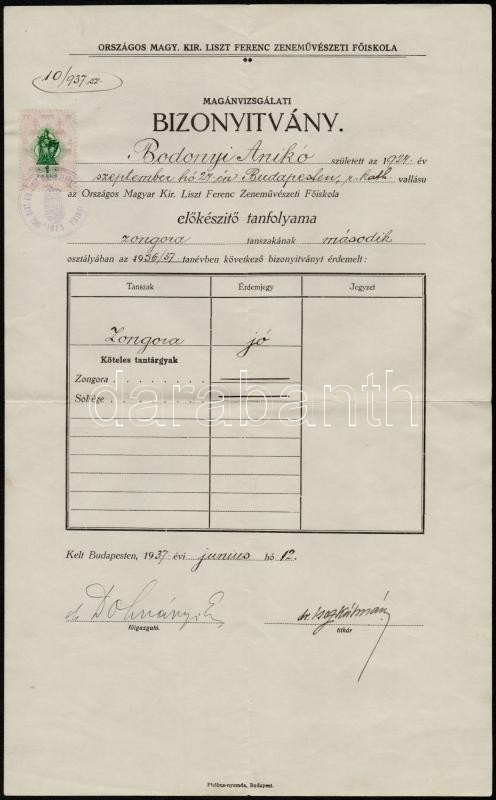 ORSZÁGOS MAGY. KIR. LISZT FERENC ZENEMŰVÉSZETI FŐISKOLA
10/937 sz.
MAGÁNVIZSGÁLATI
BIZONYITVÁNY.
Bodonyi Anikó született az 1924. év
szeptember hó 27-én Budapesten, r. kath. vallásu
az Országos Magyar Kir. Liszt Ferenc Zeneművészeti Főiskola
előkészitő tanfolyama
zongora tanszakának második
osztályában az 1936/37. tanévben következő bizonyitványt érdemelt:
Tanszak Érdemjegy Jegyzet
Zongora jó
Köteles tantárgyak
Zongora . . . . . . . .
Solfège . . . . . . . .
darabanth
Kelt Budapesten, 1937. évi junius hó 12.
dr Dohnányi E
főigazgató.
dr. Isoz Kálmán
titkár
Phőbus-nyomda, Budapest.